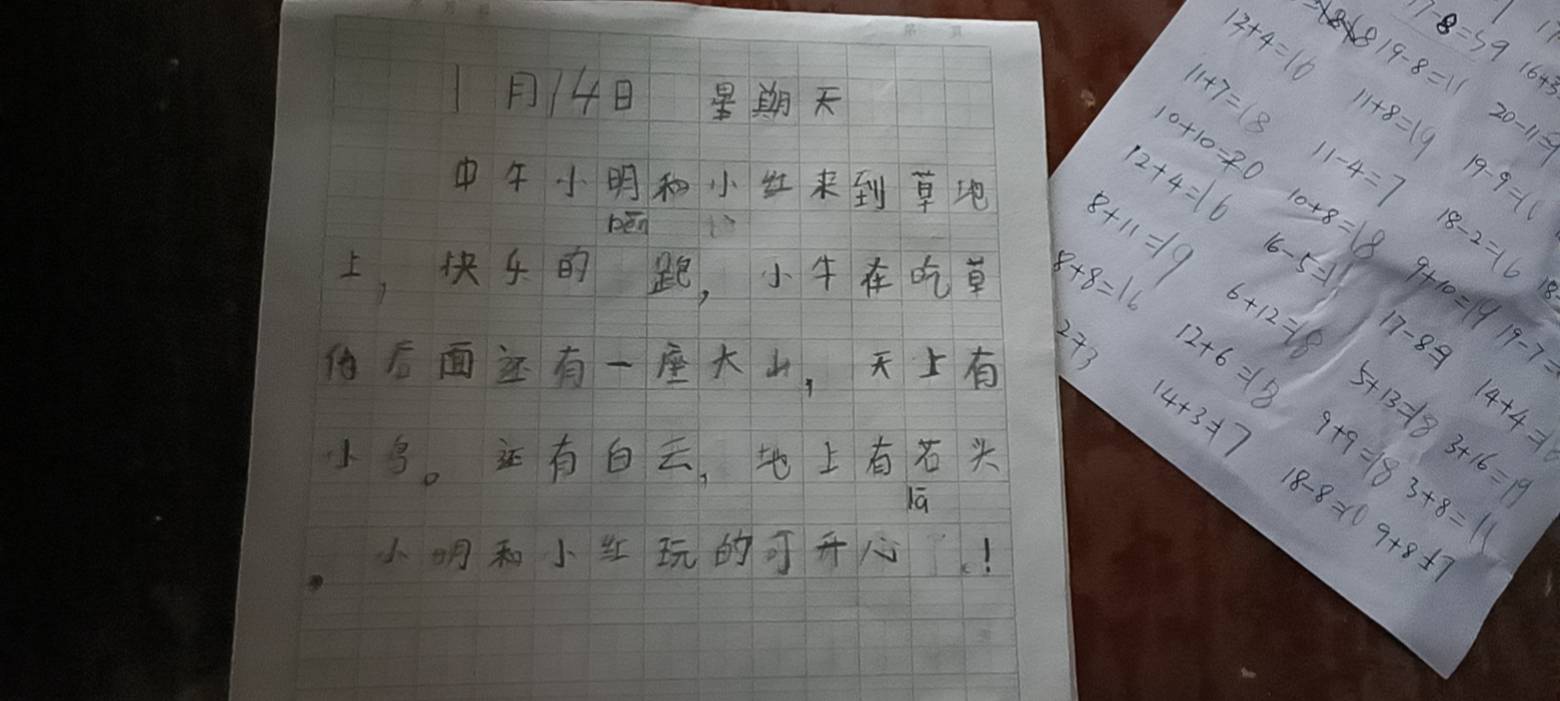 1月14日 星期天
中午小明和小红来到草地
上，快乐的 跑，小牛在吃草
后面还有一座大山，天上有
小鸟。还有白云，地上有石头
。小明和小红玩的可开心 ！
17-8=9
12+4=16
19-8=11
11+7=18
11+8=19
20-11=9
10+10=20
11-4=7
19-9=10
12+4=16
10+8=18
18-2=16
8+11=19
16-5=11
9+10=19
19-7=
8+8=16
6+12=18
17-8=9
14+4=18
2+3
12+6=18
5+13=18
3+16=19
14+3=17
9+9=18
3+8=11
18-8=10
9+8=17